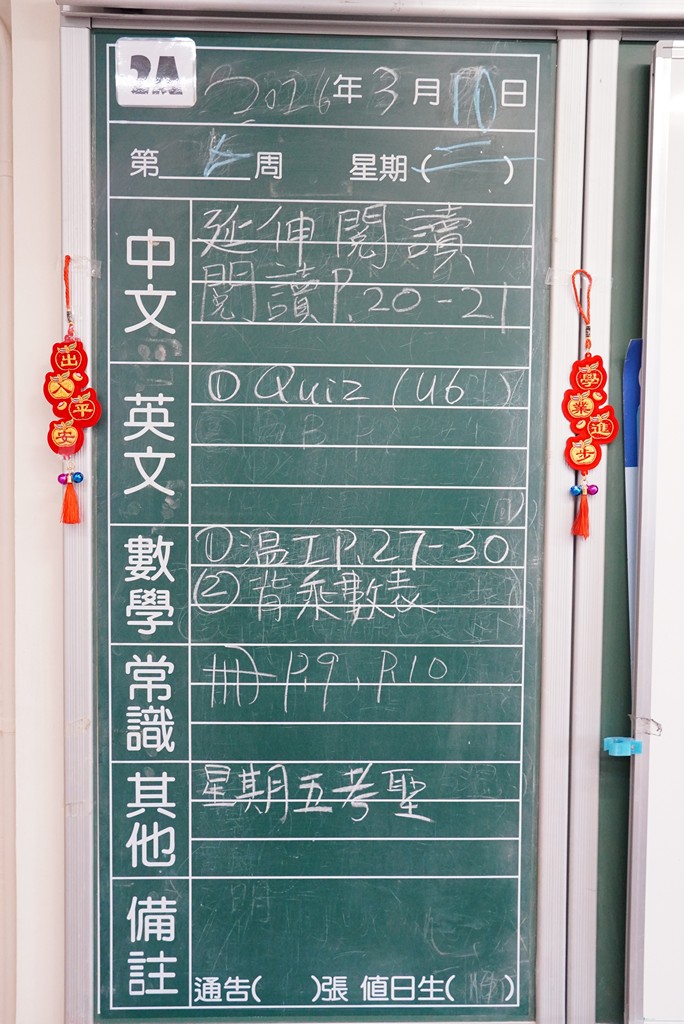 2A
2026年3月10日
第 周 星期(二)
中文
延伸閱讀
閱讀P.20-21
英文
① Quiz (U6 )
數學
①温工P.27-30
②背乘數表
常識
冊 P.9、P.10
其他
星期五考聖
備註
通告( )張 值日生( )
出
入
平
安
學
業
進
步